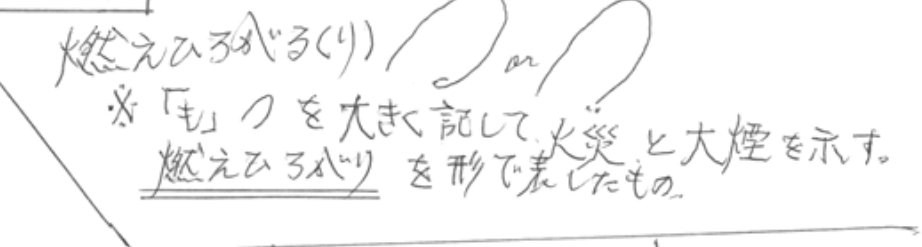 燃えひろがる(り) or
※「も」つを大きく記して火災と大煙を示す。
燃えひろがりを形で表したもの